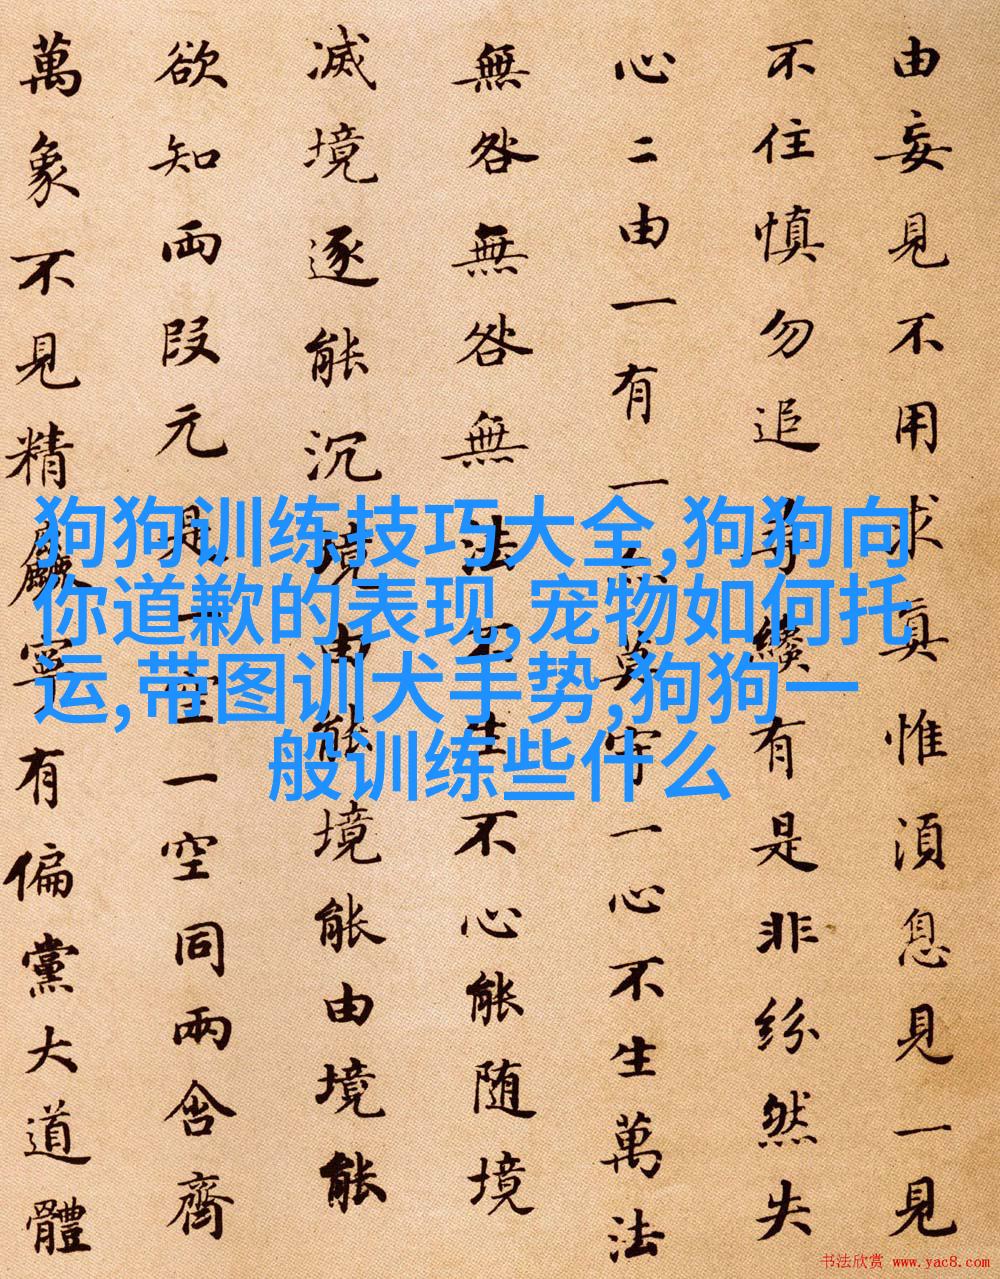 由妄見不用求真惟湏息見一見
不住慎勿追尋纔有是非紛然失
心二由一有一亦莫守一心不生萬法
無咎無咎無法不生不心能随境
滅境逐能沉境由能境能由境能
欲知両段元是一空一空同兩含齊
萬象不見精麤寧有偏黨大道體
狗狗训练技巧大全,狗狗向
你道歉的表现,宠物如何托
运,带图训犬手势,狗狗一
般训练些什么
书法欣赏 www.yac8.com